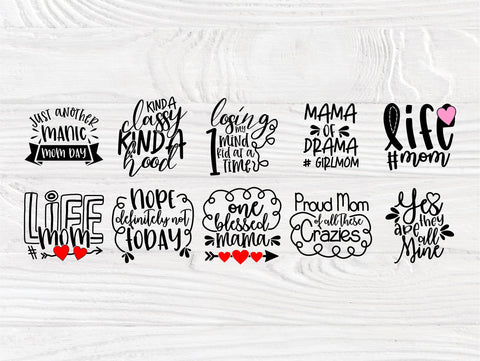 just another
manic
mom day
KINDA
classy
KINDA
hood
losing
my
mind
1 kid at a
time
MAMA
OF
DRAMA
# GIRLMOM
life
#mom
LIFE
#mom
NOPE
definitely not
TODAY
one
blessed
mama
Proud Mom
of all These
Crazies
Yes
they
are all
Mine